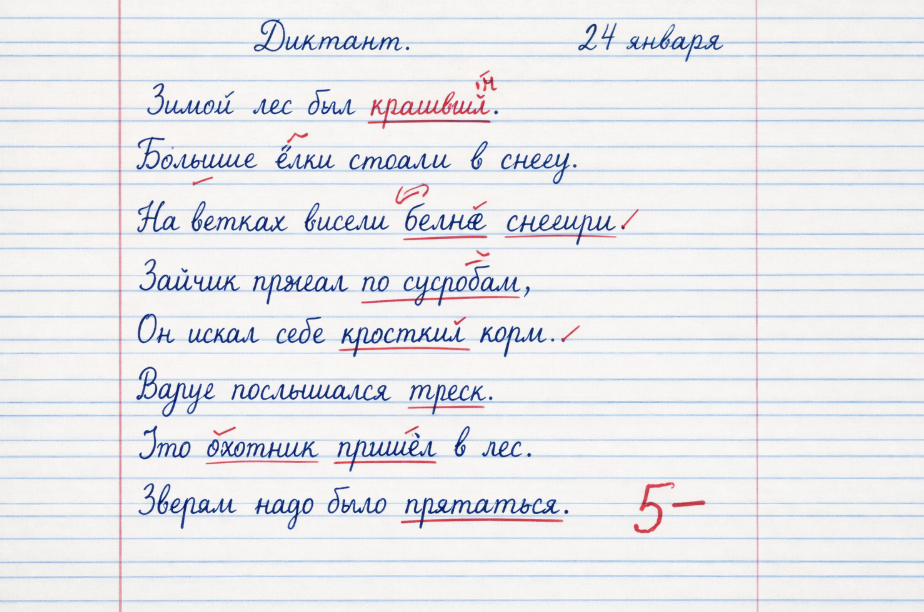 Диктант. 24 января
Зимой лес был крашвший.
Большие ёлки стоали в снееу.
На ветках висели белнæ снееири.
Зайчик пржеал по сусробам,
Он искал себе кросткий корм.
Варуе послышался треск.
Это охотник пришёл в лес.
Зверям надо было прятаться.
5−